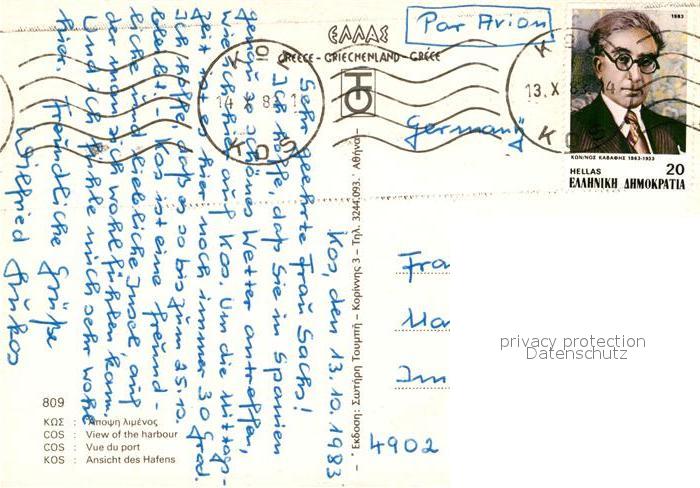 ΕΛΛΑΣ
GREECE - GRIECHENLAND - GRÈCE
Par Avion
1983
ΚΩΝ/ΝΟΣ ΚΑΒΑΦΗΣ 1863-1933
HELLAS 20
ΕΛΛΗΝΙΚΗ ΔΗΜΟΚΡΑΤΙΑ
13.X.83
KOS
14 X 83
KOS
Germany
Kos, den 13.10.1983
Sehr geehrte Frau Sachs!
Ich hoffe, daß Sie in Spanien
genau so schönes Wetter antreffen,
wie ich hier auf Kos. Um die Mittags-
zeit ist es hier noch immer 30 Grad.
Ich hoffe, daß es so bis zum 25.10.
bleibt. Kos ist eine freund-
liche und liebliche Insel, auf
der man sich wohlfühlen kann.
Und ich fühle mich sehr wohl
hier. Freundliche Grüße
Wilfried
Έκδοση: Σωτήρη Τουμπή - Κορίννης 3 - Τηλ. 3244.093. Αθήνα
Fra
Ma
Im
4902
privacy protection
Datenschutz
809
ΚΩΣ : Άποψη λιμένος
COS : View of the harbour
COS : Vue du port
KOS : Ansicht des Hafens